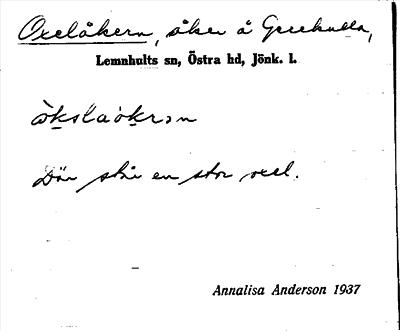 Oxelåkern, åker å
Lemnhults sn, Östra hd, Jönk. l.
Där står en stor oxel.
Annalisa Anderson 1937